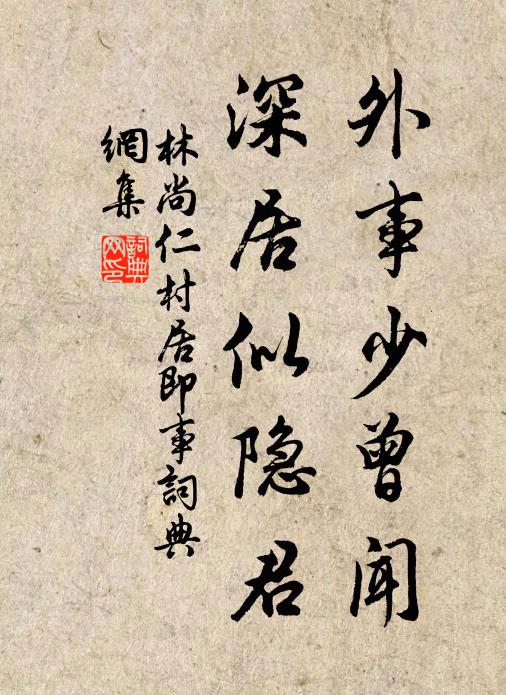 外事少曾闻
深居似隐君
林尚仁村居即事詞典
網集
詞典
网印